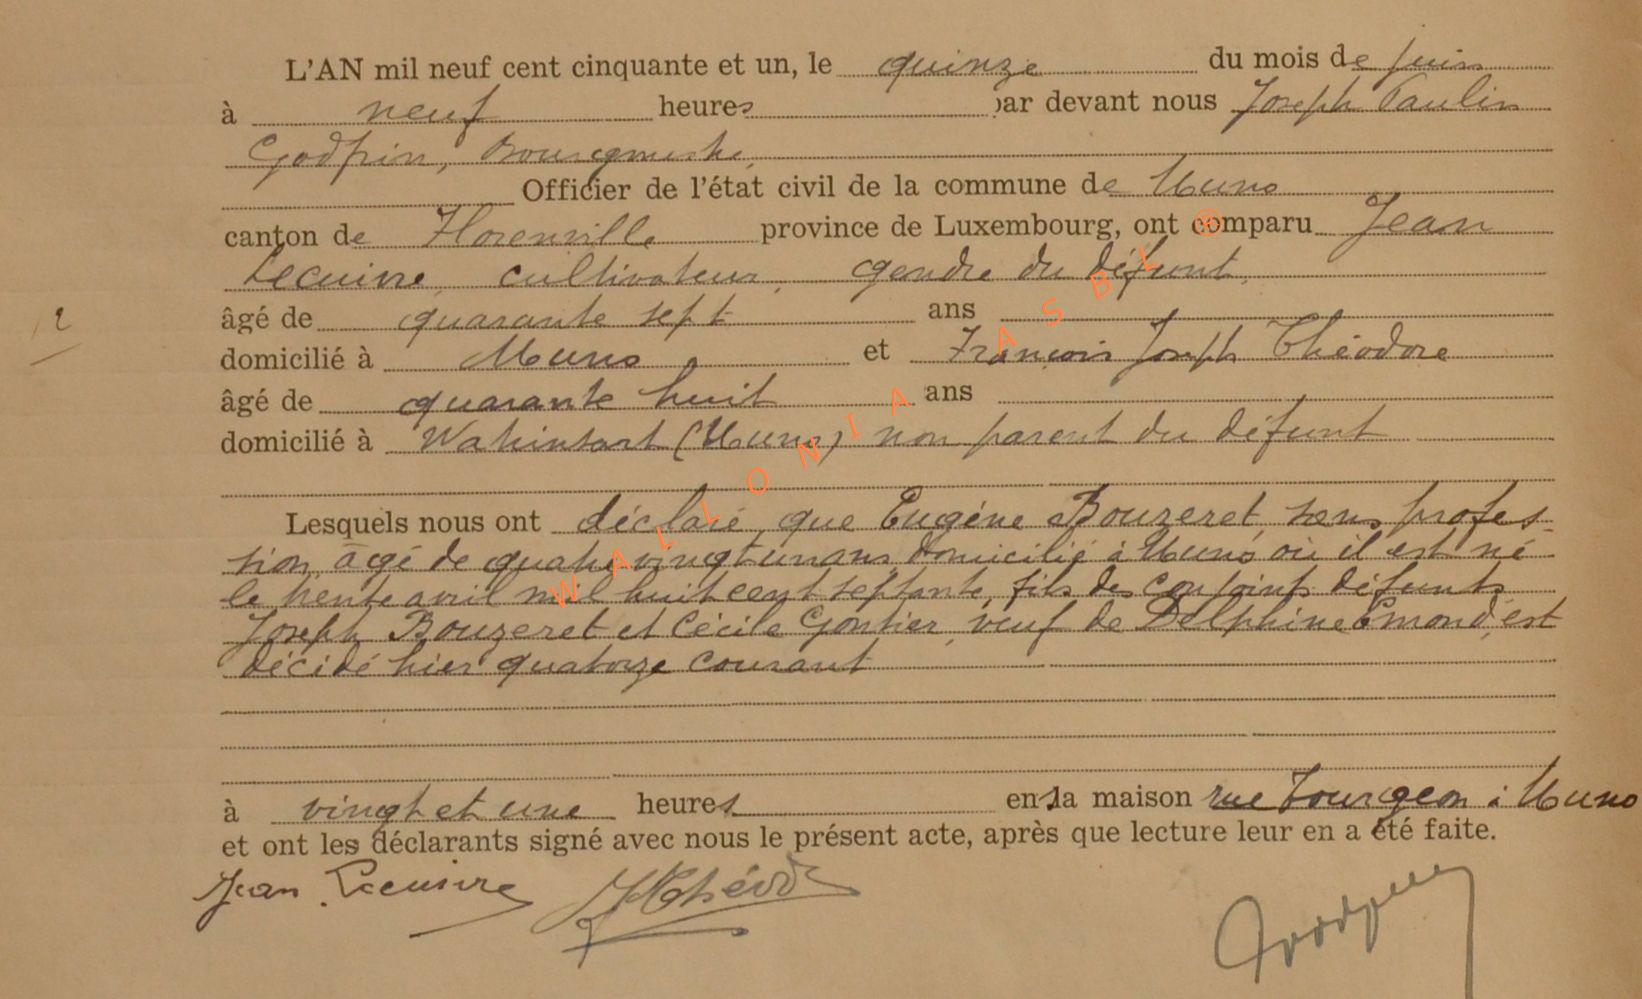 L'AN mil neuf cent cinquante et un, le quinze du mois de juin
à neuf heures par devant nous Joseph Paulin
Godfrin, Bourgmestre,
Officier de l'état civil de la commune de Muno
canton de Florenville province de Luxembourg, ont comparu Jean
Lecuivre, cultivateur, gendre du défunt,
12
âgé de quarante sept ans
domicilié à Muno et François Joseph Théodore
âgé de quarante huit ans
domicilié à Watrinsart (Muno) non parent du défunt
Lesquels nous ont déclaré que Eugène Bouzeret, sans profes-
sion, âgé de quatre vingt un ans, domicilié à Muno où il est né
le trente avril mil huit cent septante, fils des conjoints défunts
Joseph Bouzeret et Cécile Gontier, veuf de Delphine Emond, est
décédé hier quatorze courant
à vingt et une heures en sa maison rue Fourgeon à Muno
et ont les déclarants signé avec nous le présent acte, après que lecture leur en a été faite.
Jean Lecuivre JThéod Godfrin
WALLONIA ASBL ®